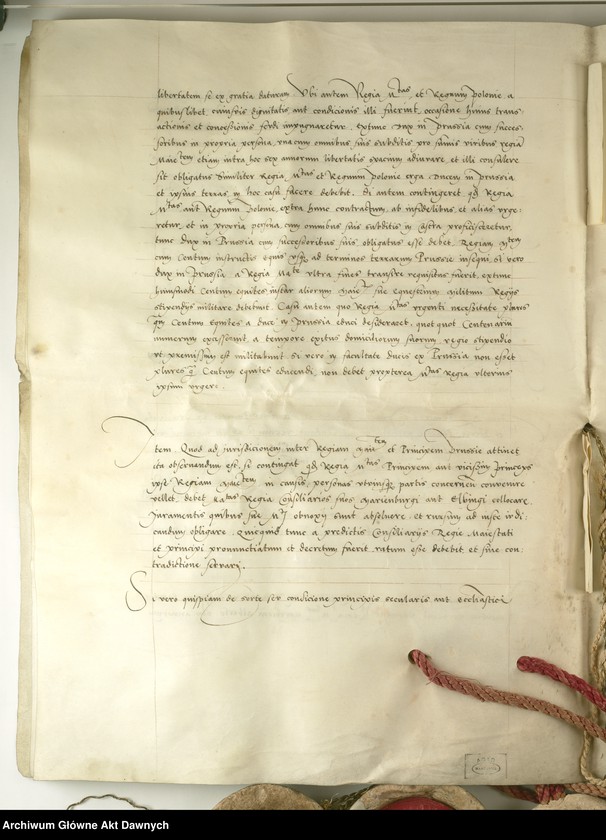 libertatem se ex gratia daturam Ubi autem Regia Mtas et Regnum Polonie a
quibuslibet cuiusvis dignitatis aut condicionis illi fuerint occasione huius trans-
actionis et concessionis feudi impugnaretur extunc dux in Prussia cum succes-
soribus in propria persona unacum omnibus suis subditis pro summis viribus regia
Maietem etiam intra hoc sex annorum libertatis spacium adiuvare et illi consulere
sit obligatus Similiter Regia Mtas et Regnum Polonie erga Ducem in Prussia
et ipsius terras in hoc casu facere debebit. Si autem contingeret qd Regia
Mtas aut Regnum Polonie, extra hunc contractum, ab infidelibus et alias urge-
retur, et in propria persona cum omnibus suis subditis in castra proficisceretur,
tunc dux in Prussia cum successoribus suis obligatus esse debet Regiam Mtem
cum Centum instructis equis usque ad terminos terrarum Prussie insequi, Si vero
dux in Prussia a Regia Mate ultra fines transire requisitus fuerit, extunc
huiusmodi Centum equites instar aliorum Maietis sue equestrium militum Regijs
stipendijs militare debebunt. Casu autem quo Regia Mtas urgenti necessitate plures
qm Centum equites a duce in Prussia educi desideraret, quotquot Centenarium
numerum excesserint a tempore exitus domiciliorum suorum regio stipendio
ut premissum est militabunt Si vero in facultate ducis ex Prussia non esset
plures qm Centum equites educendi, non debet propterea Mtas Regia ulterius
ipsum urgere.
Item Quod ad iurisdicionem inter Regiam Maitem et Principem Prussie attinet
ita observandum est, si contingat qd Regia Mtas Principem aut vicissim princeps
ipse Regiam Maietem in causis personas utriusque partis concernentibus convenire
vellet, debet Matas Regia Consiliarios suos Marienburgi aut Elbingi collocare
Juramentis quibus sue Mti obnoxij sunt absolvere, et rursum ad insce iudi-
candum obligare. Quicquid tunc a predictis Consiliarijs Regie Maiestati
et principi pronunctiatum et decretum fuerit ratum esse debebit et sine con
tradictione servari.
Si vero quispiam de sorte seu condicione principis secularis aut ecclesiastici
Archiwum Główne Akt Dawnych